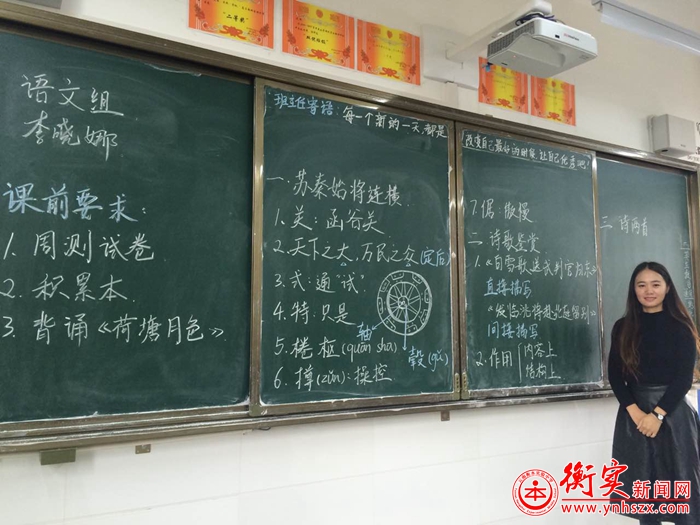 语文组
李晓娜
课前要求:
1. 周测试卷
2. 积累本
3. 背诵《荷塘月色》
班主任寄语: 每一个新的一天,都是
改变自己最好的时候,让自己优秀吧!
一. 苏秦始将连横
1. 关:函谷关
2. 天下之大,万民之众(定后)
3. 式:通“试”
4. 特:只是
5. 棬枢(quān shū)
6. 撙(zǔn):操控
轴
毂(gǔ)
7. 倨:傲慢
二. 诗歌鉴赏
1.《白雪歌送武判官归京》
直接描写
间接描写
2. 作用
内容上
结构上
三. 诗两首
衡实新闻网
www.ynhszx.com